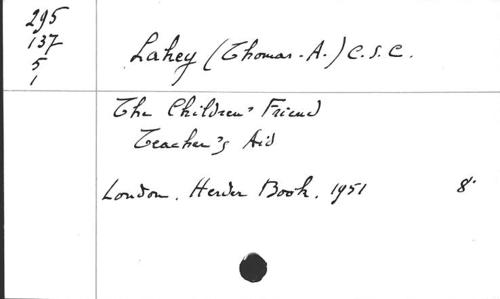 295
137
5
1
Lahey (Thomas. A.) C.S.C.
The Children's Friend
Teacher's Aid
London. Herder Book. 1951 8°